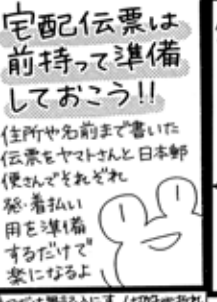 宅配伝票は
前持って準備
しておこう!!
住所や名前まで書いた
伝票をヤマトさんと日本郵
便さんでそれぞれ
発・着払い
用を準備
するだけで
楽になるよ